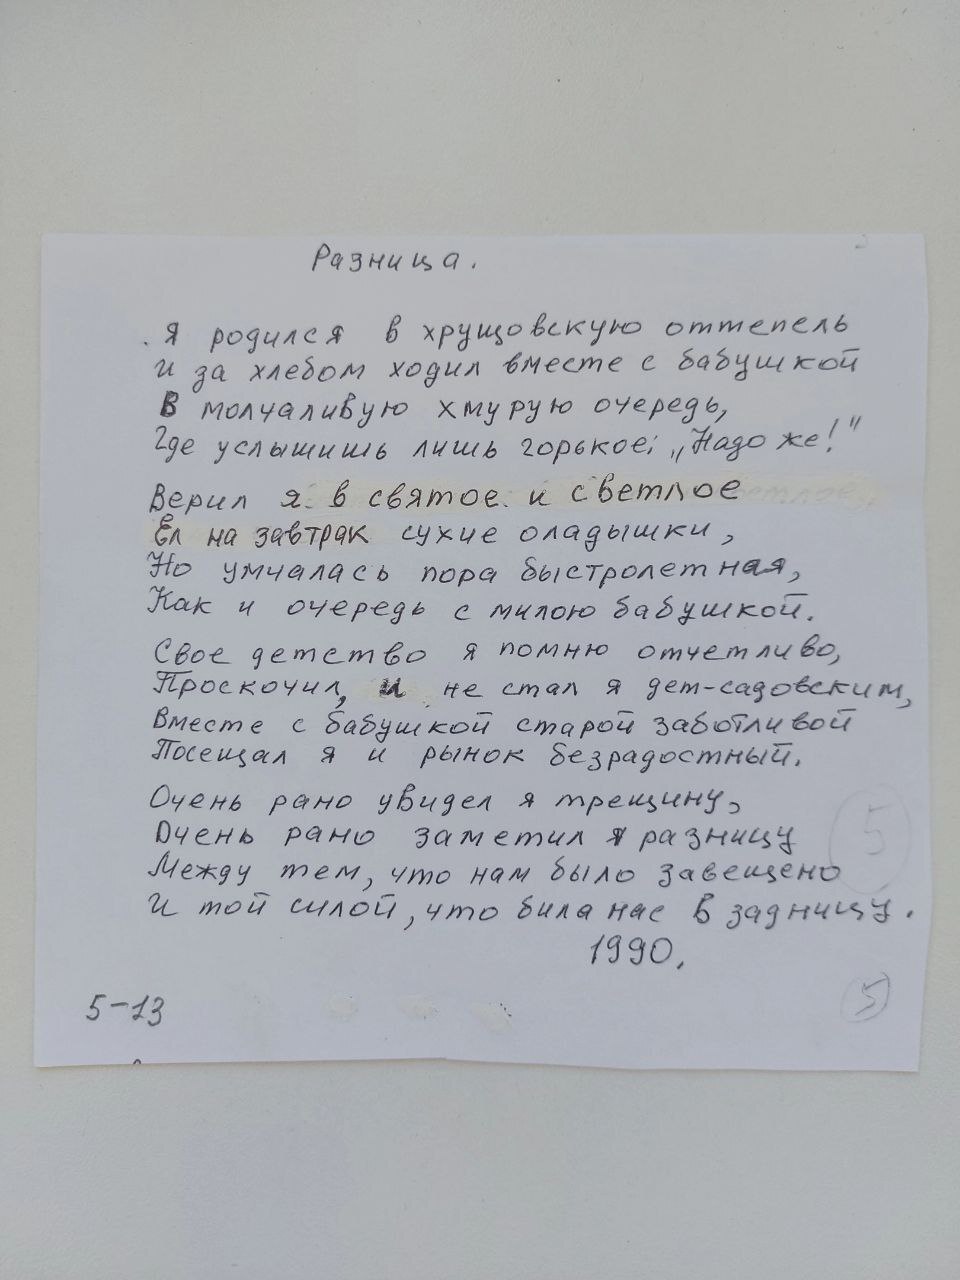 Разница.
Я родился в хрущовскую оттепель
И за хлебом ходил вместе с бабушкой
В молчаливую хмурую очередь,
Где услышишь лишь горькое: „Надо же!"
Верил я в святое и светлое
Ел на завтрак сухие оладышки,
Но умчалась пора быстролетная,
Как и очередь с милою бабушкой.
Свое детство я помню отчетливо,
Проскочил, и не стал я дет-садовским,
Вместе с бабушкой старой заботливой
Посещал я и рынок безрадостный.
Очень рано увидел я трещину,
Очень рано заметил я разницу
Между тем, что нам было завещено
И той силой, что била нас в задницу.
1990.
5
5-13
5